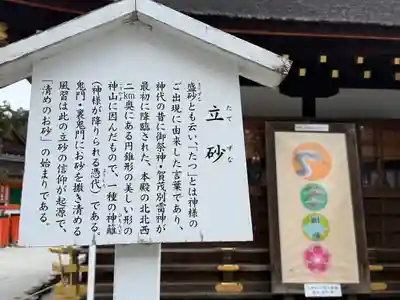 立砂
たてずな
盛砂とも云い、「たつ」とは神様の
ご出現に由来した言葉であり、
神代の昔に御祭神・賀茂別雷神が
最初に降臨された、本殿の北北西
二㎞奥にある円錐形の美しい形の
神山に因んだもので、一種の神籬
(神様が降りられる憑代)である。
鬼門・裏鬼門にお砂を撒き清める
風習は此の立砂の信仰が起源で、
「清めのお砂」の始まりである。